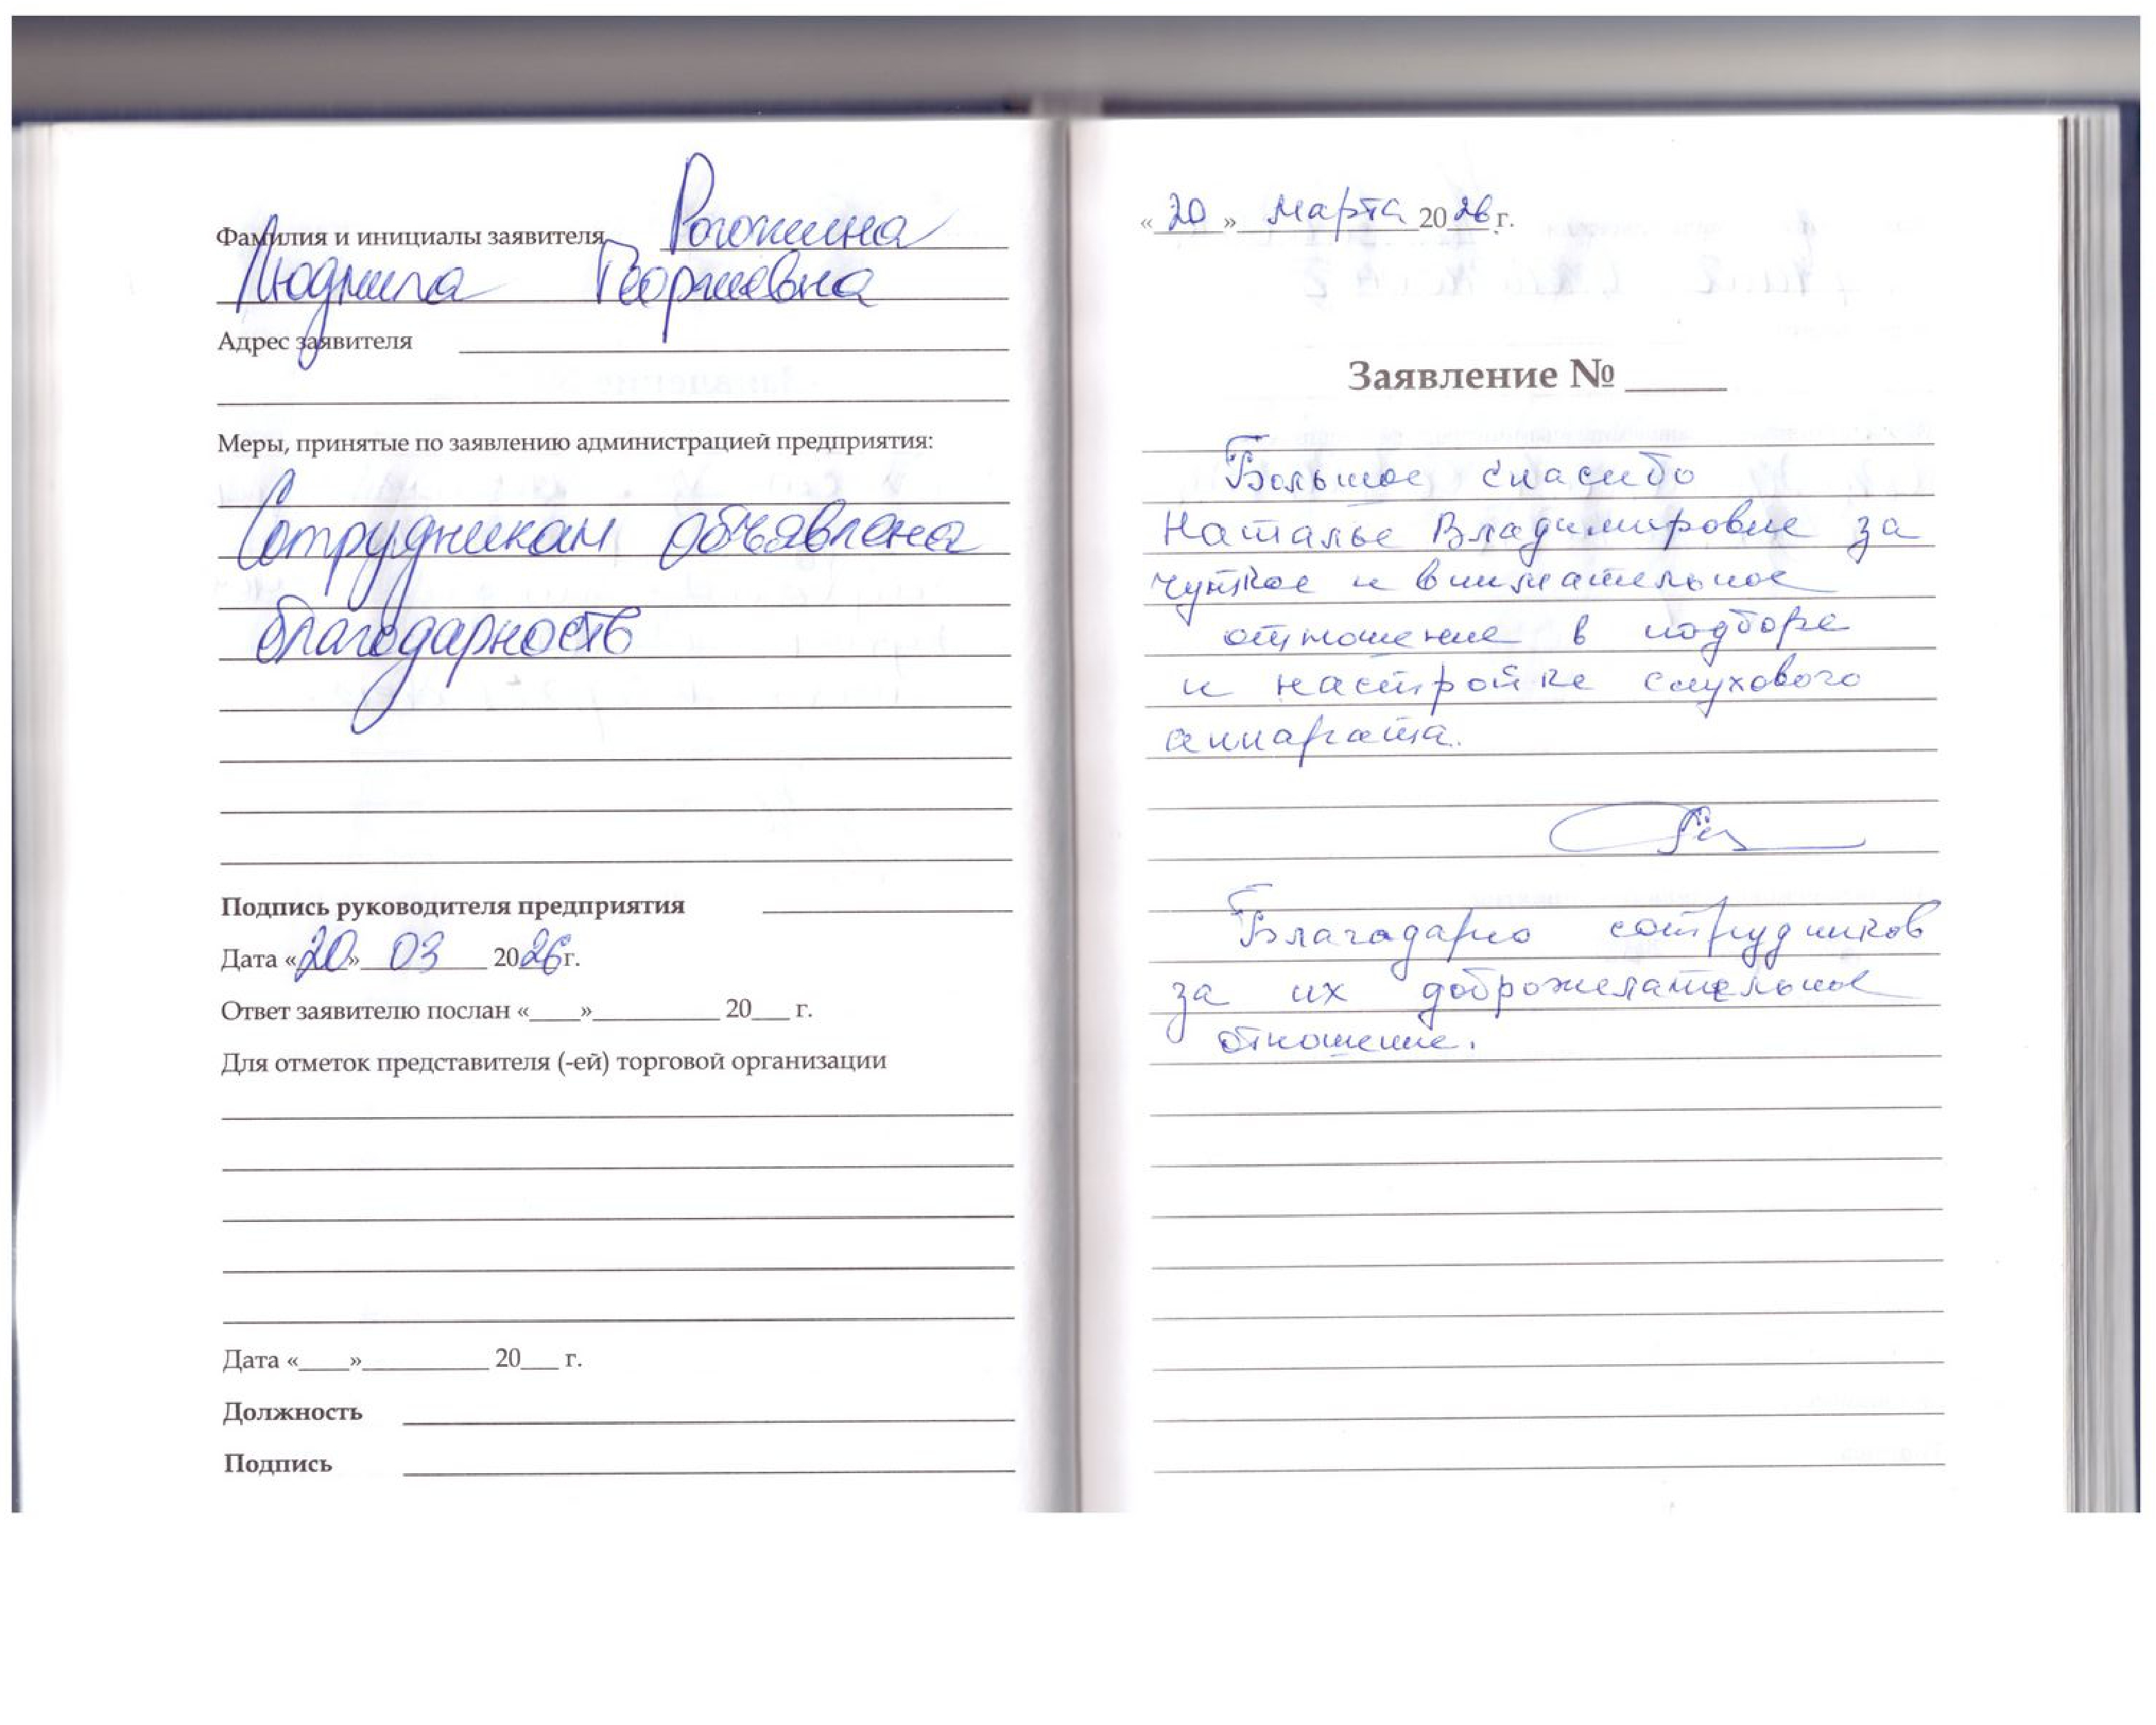 Фамилия и инициалы заявителя Рогожина
Людмила Георгиевна
Адрес заявителя
Меры, принятые по заявлению администрацией предприятия:
Сотрудникам объявлена
благодарность
Подпись руководителя предприятия
Дата «20» 03 2026 г.
Ответ заявителю послан «____»__________ 20___ г.
Для отметок представителя (-ей) торговой организации
Дата «____»__________ 20___ г.
Должность
Подпись
«20» марта 2026 г.
Заявление № _____
Большое спасибо
Наталье Владимировне за
чуткое и внимательное
отношение в подборе
и настройке слухового
аппарата.
Благодарю сотрудников
за их доброжелательное
отношение.